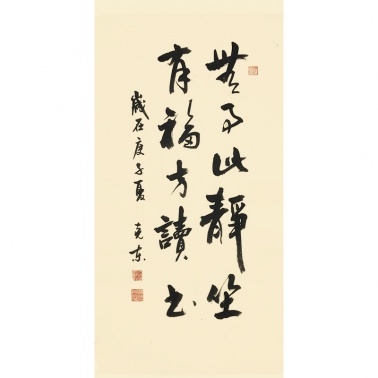 無事此靜坐
有福方讀書
歲在庚子夏 克东